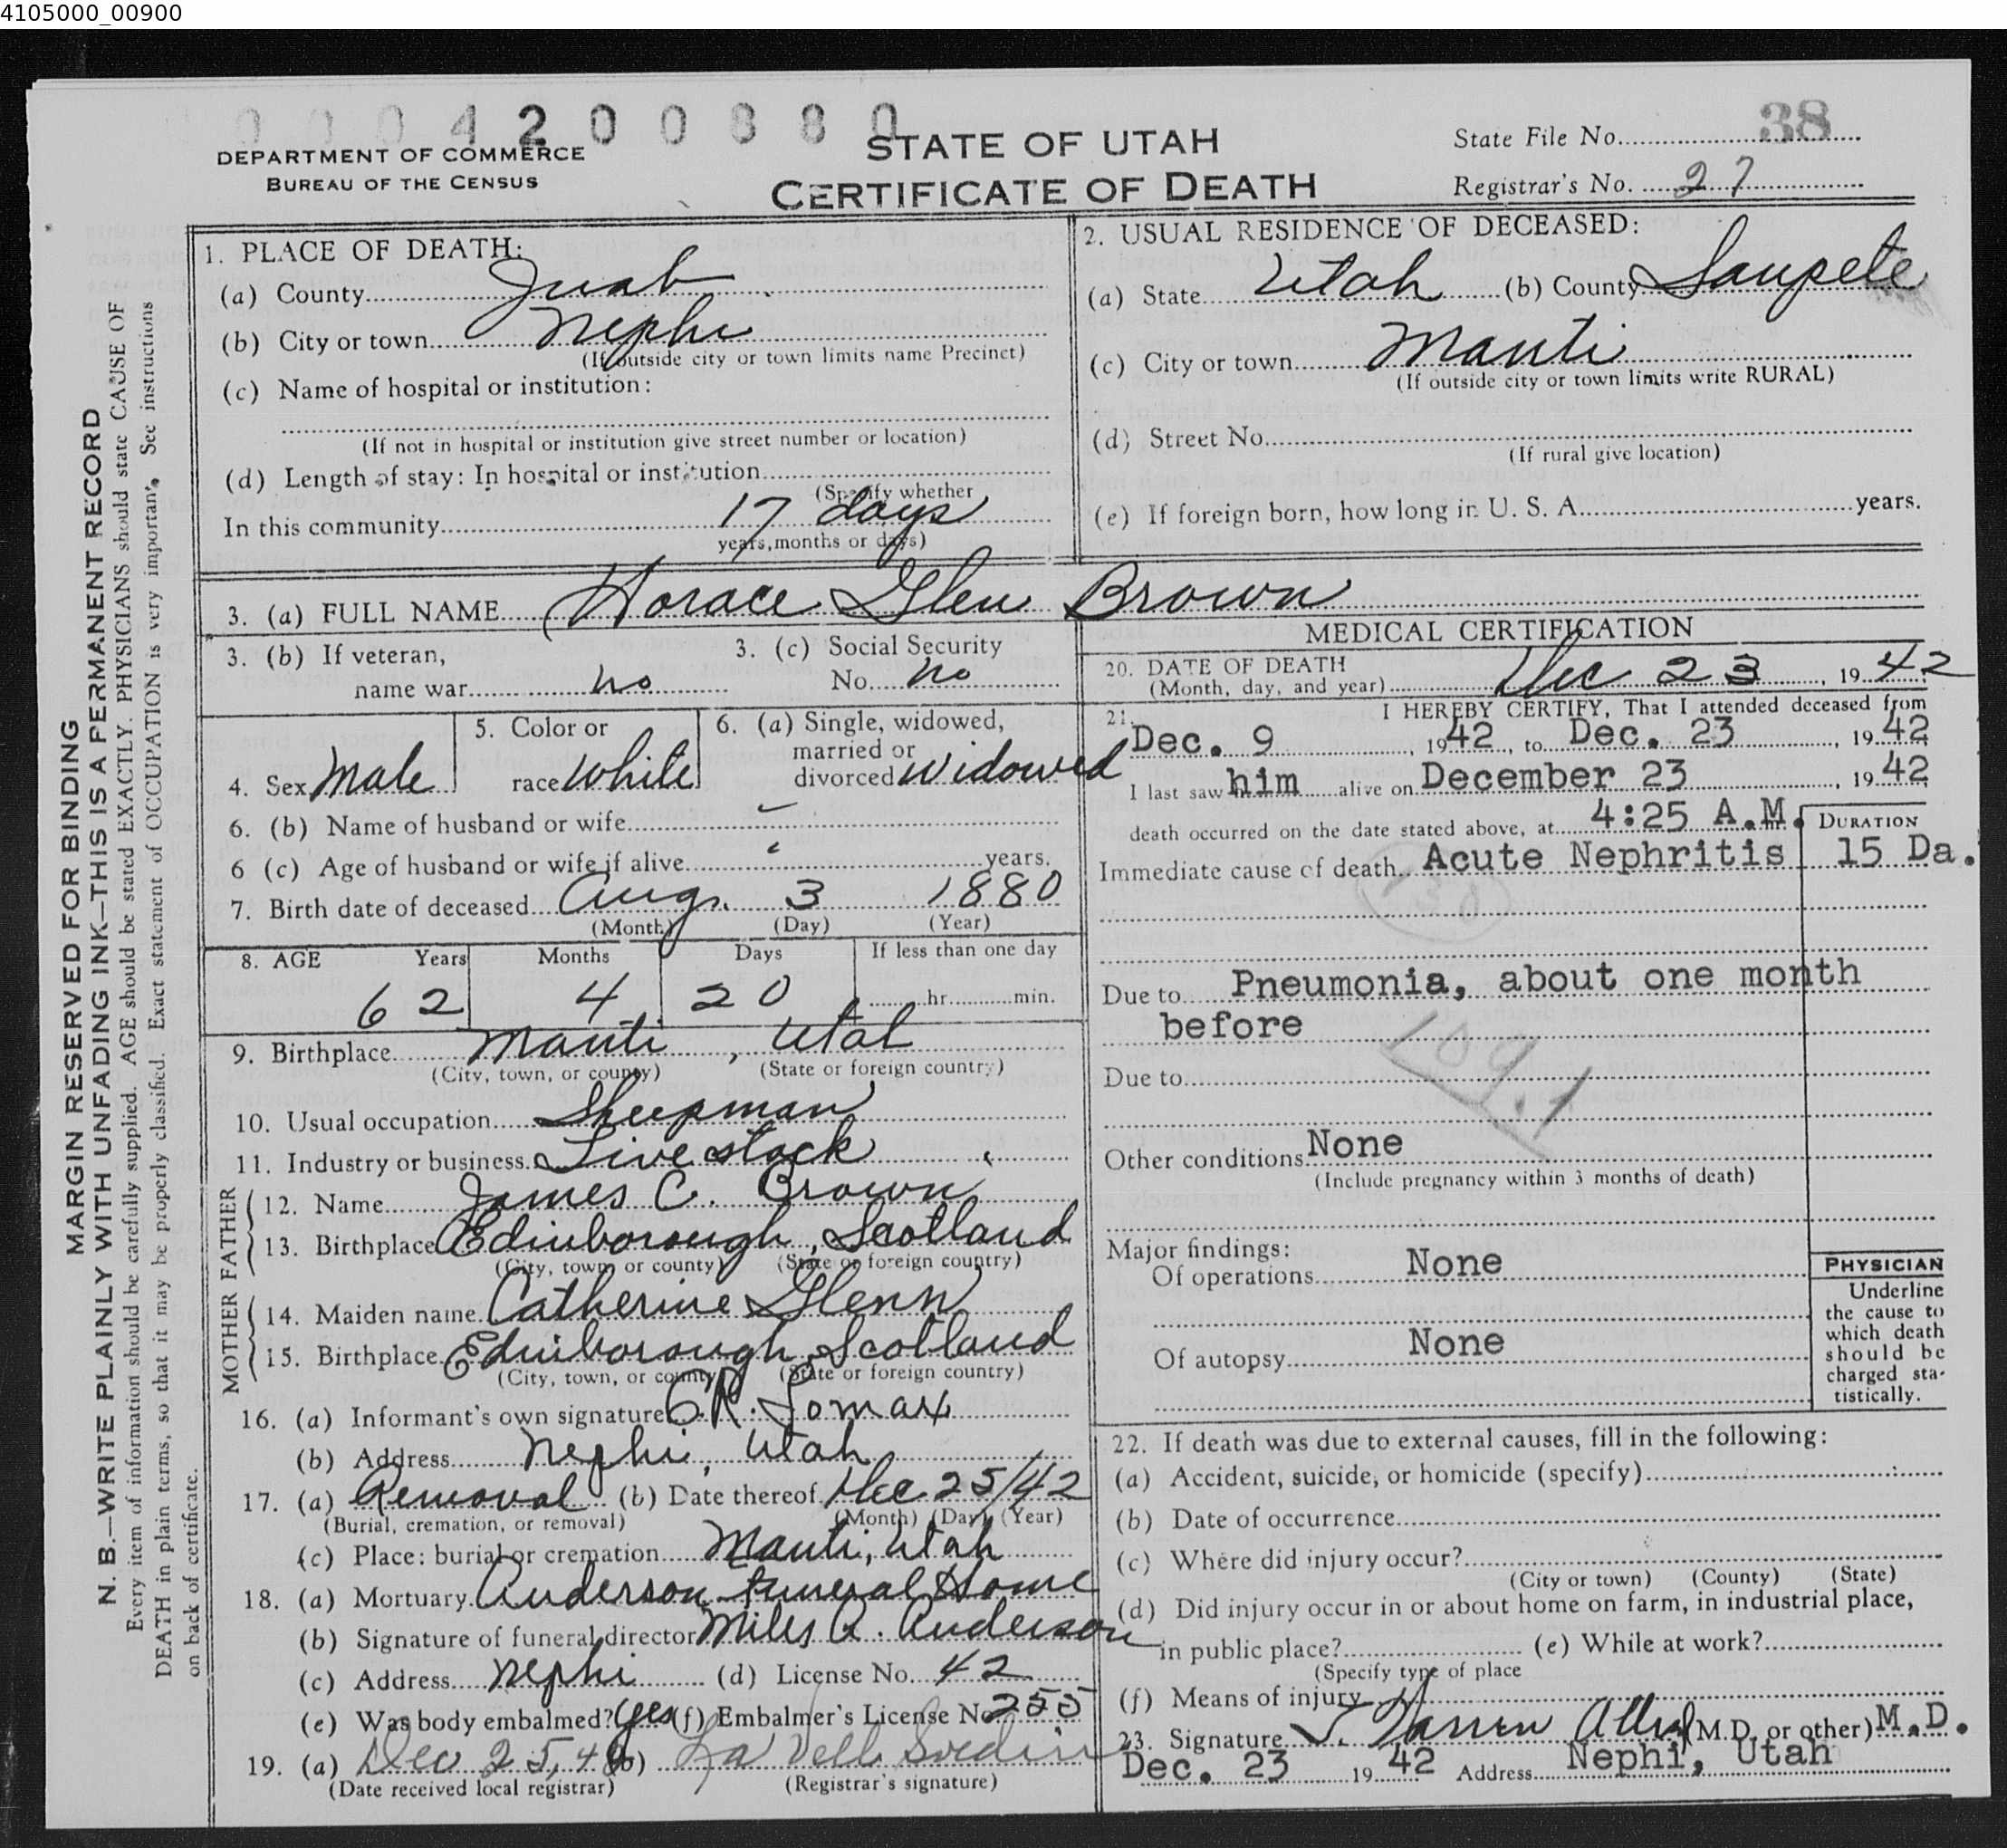 4105000_00900
0004200880
DEPARTMENT OF COMMERCE
BUREAU OF THE CENSUS
STATE OF UTAH
CERTIFICATE OF DEATH
State File No. 38
Registrar's No. 27
MARGIN RESERVED FOR BINDING
N. B.—WRITE PLAINLY WITH UNFADING INK—THIS IS A PERMANENT RECORD
Every item of information should be carefully supplied. AGE should be stated EXACTLY. PHYSICIANS should state CAUSE OF
DEATH in plain terms, so that it may be properly classified. Exact statement of OCCUPATION is very important. See instructions
on back of certificate.
1. PLACE OF DEATH:
(a) County Juab
(b) City or town Nephi
(If outside city or town limits name Precinct)
(c) Name of hospital or institution:
(If not in hospital or institution give street number or location)
(d) Length of stay: In hospital or institution
(Specify whether
In this community 17 days
years, months or days)
2. USUAL RESIDENCE OF DECEASED:
(a) State Utah (b) County Sanpete
(c) City or town Manti
(If outside city or town limits write RURAL)
(d) Street No.
(If rural give location)
(e) If foreign born, how long in U. S. A. years.
3. (a) FULL NAME Horace Glen Brown
3. (b) If veteran,
name war no
3. (c) Social Security
No. no
4. Sex Male
5. Color or
race White
6. (a) Single, widowed,
married or
divorced Widowed
6. (b) Name of husband or wife
6 (c) Age of husband or wife if alive years.
7. Birth date of deceased Aug. 3 1880
(Month) (Day) (Year)
8. AGE Years Months Days If less than one day
62 4 20 hr. min.
9. Birthplace Manti, Utah
(City, town, or county) (State or foreign country)
10. Usual occupation Sheepman
11. Industry or business Live stock
FATHER
12. Name James C. Brown
13. Birthplace Edinborough, Scotland
(City, town or county) (State or foreign country)
MOTHER
14. Maiden name Catherine Glenn
15. Birthplace Edinborough, Scotland
(City, town, or county) (State or foreign country)
16. (a) Informant's own signature C.R. Lomax
(b) Address Nephi, Utah
17. (a) Removal (b) Date thereof Dec 25/42
(Burial, cremation, or removal) (Month) (Day) (Year)
(c) Place: burial or cremation Manti, Utah
18. (a) Mortuary Anderson Funeral Home
(b) Signature of funeral director Miles A. Anderson
(c) Address Nephi (d) License No. 42
(e) Was body embalmed? Yes (f) Embalmer's License No. 255
19. (a) Dec 25, 42 (b) La Vell Sredin
(Date received local registrar) (Registrar's signature)
MEDICAL CERTIFICATION
20. DATE OF DEATH
(Month, day, and year) Dec 23, 1942
21. I HEREBY CERTIFY, That I attended deceased from
Dec. 9, 1942, to Dec. 23, 1942
I last saw him alive on December 23, 1942
death occurred on the date stated above, at 4:25 A.M.
DURATION
Immediate cause of death Acute Nephritis 15 Da.
130
Due to Pneumonia, about one month
before
109.1
Due to
Other conditions None
(Include pregnancy within 3 months of death)
Major findings:
Of operations None
Of autopsy None
PHYSICIAN
Underline
the cause to
which death
should be
charged sta-
tistically.
22. If death was due to external causes, fill in the following:
(a) Accident, suicide, or homicide (specify)
(b) Date of occurrence
(c) Where did injury occur?
(City or town) (County) (State)
(d) Did injury occur in or about home on farm, in industrial place,
in public place? (e) While at work?
(Specify type of place
(f) Means of injury
23. Signature Warren Allred (M.D. or other) M.D.
Dec. 23 1942 Address Nephi, Utah